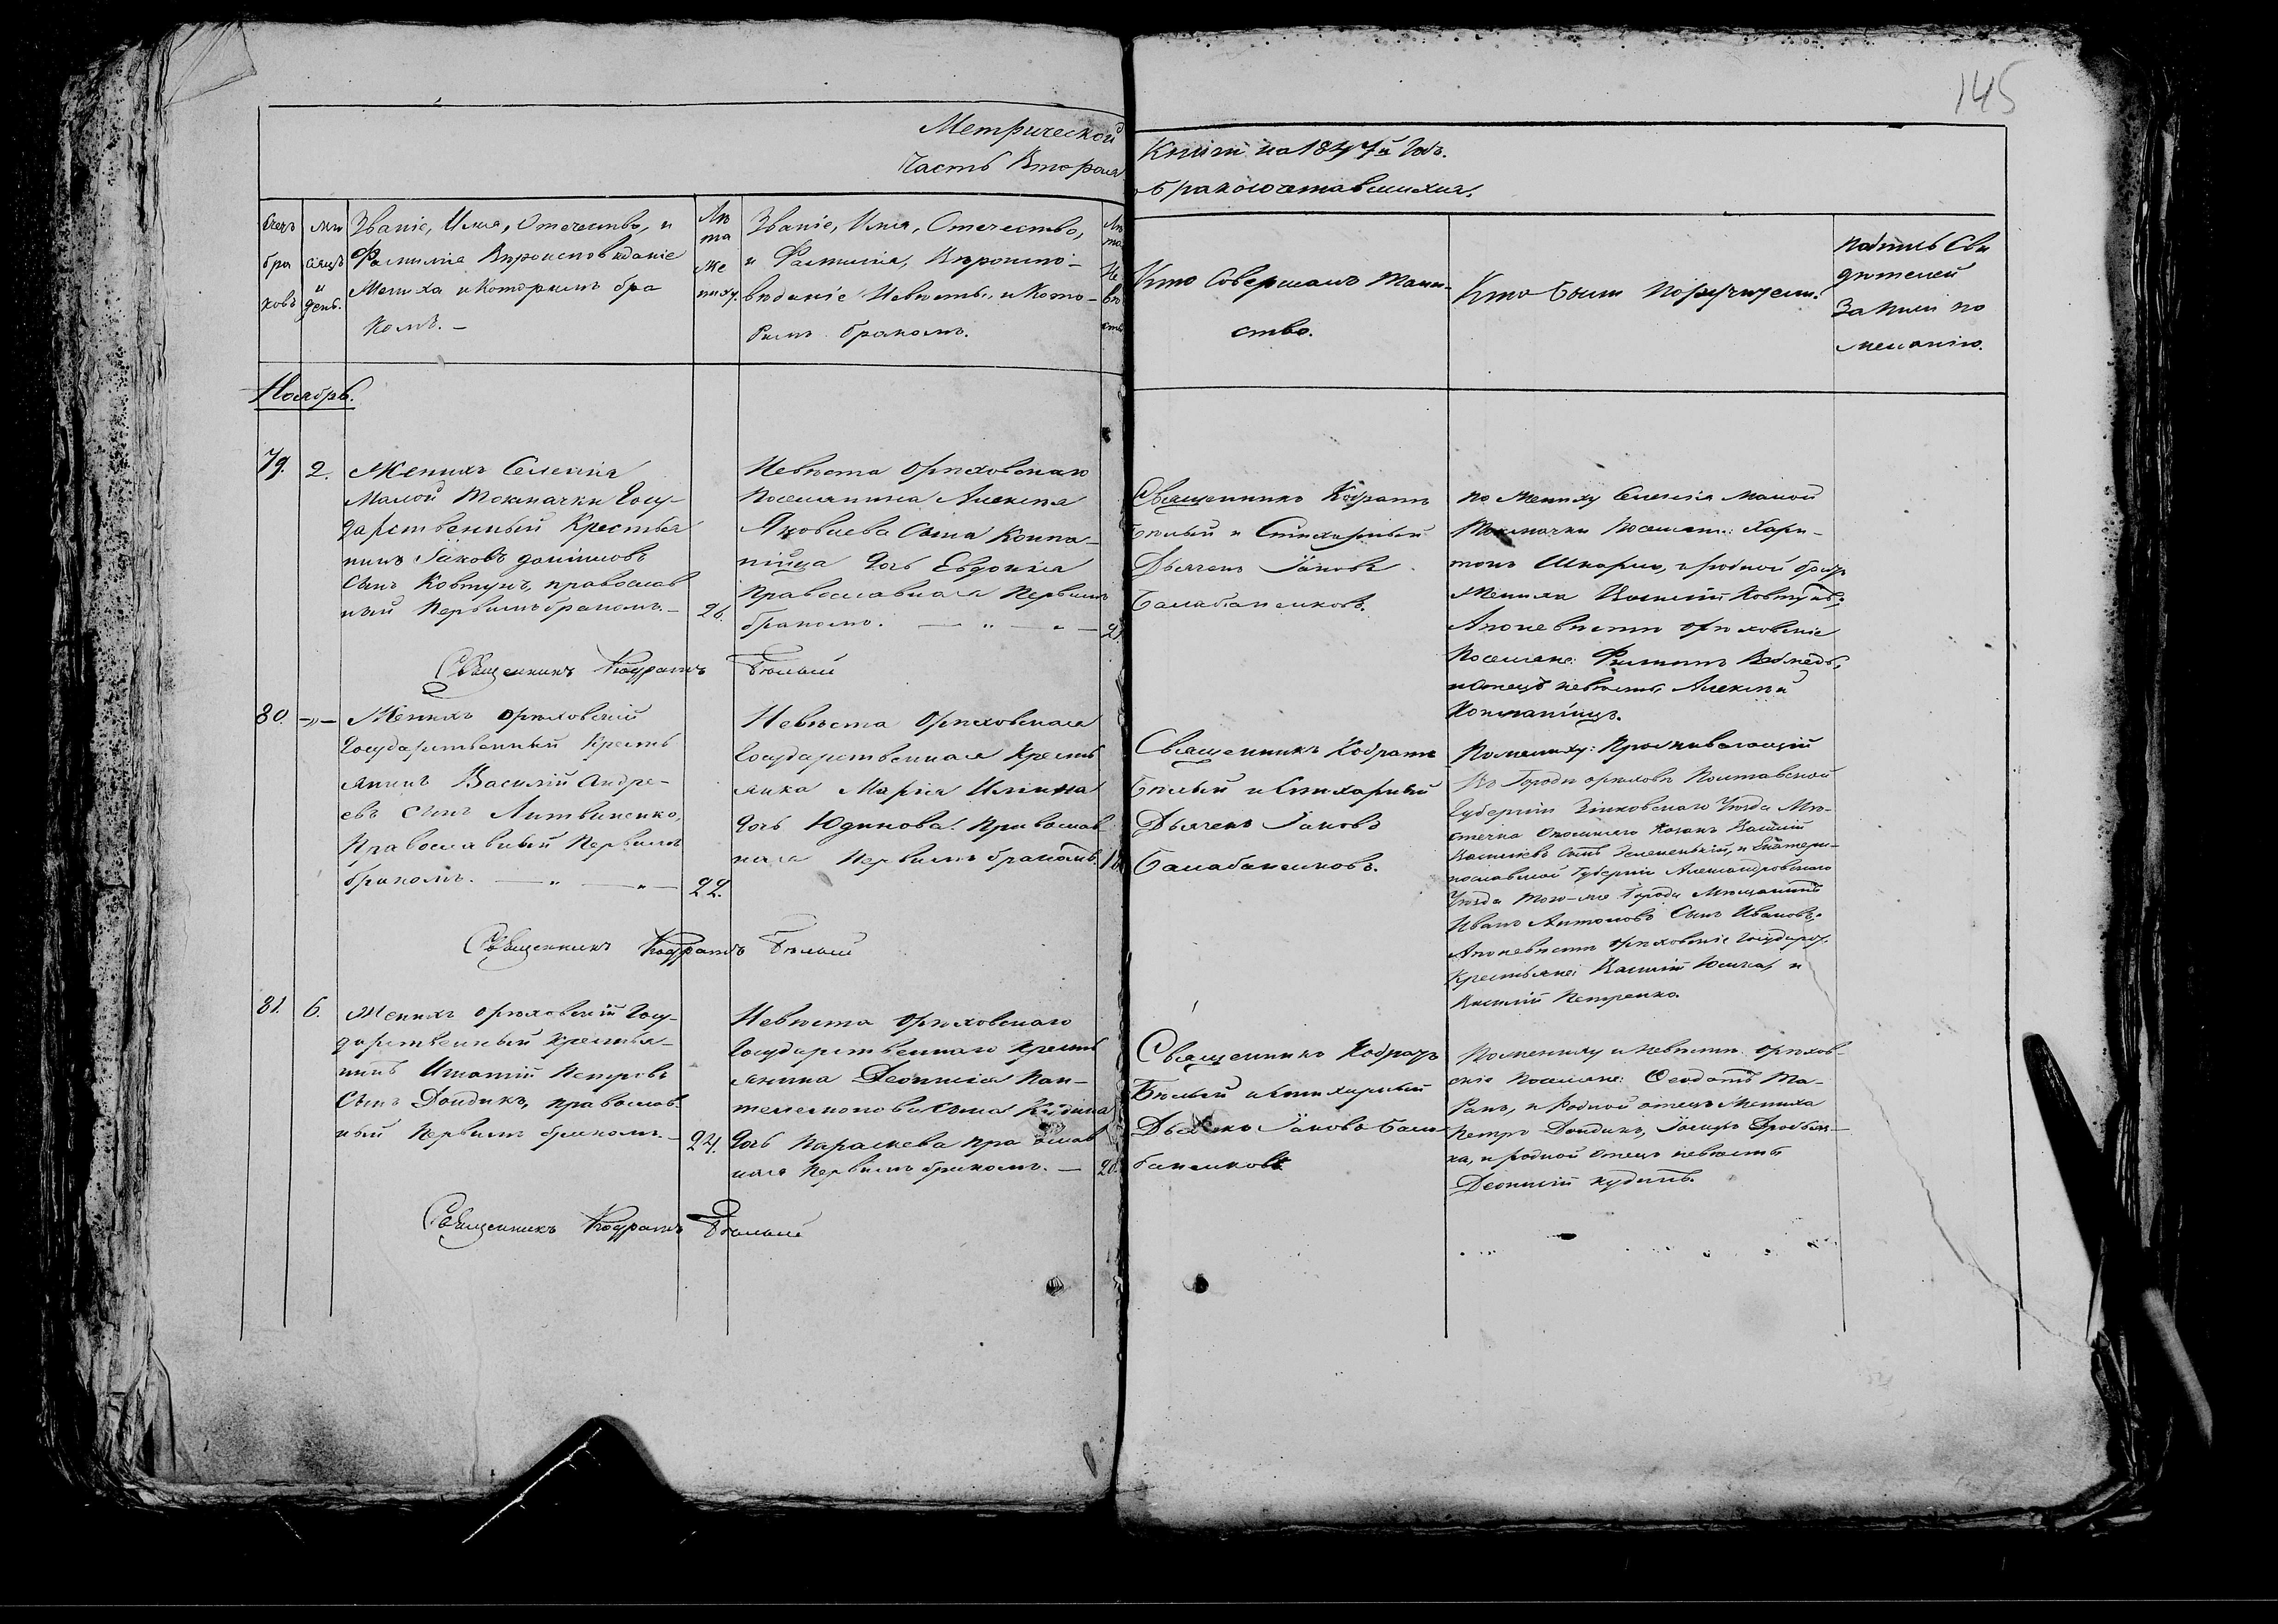 145
Метрической
Часть Вторая
Книги на 1847й Годъ.
бракосочетавшихся.
Счетъ браковъ
мѣсяцъ и день.
Званіе, Имя, Отечество, и
Фамиліе Вѣроисповѣданіе
Жениха и которымъ бра
комъ. —
Лѣ
та
же
ниху.
Званіе, Имя, Отечество,
и Фамилія, Вѣроиспо-
вѣданіе Невѣсты, и Кото-
рымъ бракомъ.
Лѣ
та
Не
вѣ
сты
Кто Совершалъ Таин-
ство.
Кто были поручители.
подпись Сви
дѣтелей
Записи по
желанію.
Ноябрь.
79. 2.
Женихъ Селенія
Малой Токмачки Госу-
дарственный Крестья
нинъ Іаковъ
сынъ Ковтунъ, православ
ный Первымъ бракомъ. — 26.
Невѣста Орѣховскаго
Поселянина Алексѣя
Яковлева Сына Компа-
нійца дочь Евдокія
Православная Первымъ
бракомъ. — " — " — 21.
Священникъ Кодратъ
Бѣлый и Стихарный
Дьячекъ Іаковъ
Балабанжовъ.
по Жениху Селенія малой
Токмачки Поселян: Хари-
тонъ Шкарпо, и родной братъ
Жениха Василій Ковтунъ;
А по невѣстѣ Орѣховскіе
Поселяне: Филиппъ
и отецъ невѣсты Алексѣй
Компаніицъ.
Священникъ Кодратъ Бѣлый
80. —"—
Женихъ Орѣховскій
Государственный Кресть
янинъ Василій Андре-
евъ сынъ Литвиненко,
Православный Первымъ
бракомъ. — " — " — 22.
Невѣста Орѣховская
Государственная Кресть
янка Марія Ильина
дочь Юдинова. Православ
ная Первымъ бракомъ. 18
Священникъ Кодратъ
Бѣлый и Стихарный
Дьячекъ Іаковъ
Балабанжовъ.
По жениху: Проживающій
Въ Городѣ Орѣховѣ Полтавской
Губерніи Зѣнковскаго Уѣзда Мѣ-
стечка Опошняго Козакъ Василій
Васильевъ Сынъ и Екатери-
нославской Губерніи Александровскаго
Уѣзда того-же Города Мещанинъ
Иванъ Антоновъ Сынъ Ивановъ.
А по невѣстѣ Орѣховскіе Государст.
Крестьяне: Василій и
Василій Петренко.
Священникъ Кодратъ Бѣлый
81. 6.
Женихъ Орѣховскій Госу-
дарственный Крестья-
нинъ Игнатій Петровъ
Сынъ Дондикъ, православ-
ный Первымъ бракомъ. — 24.
Невѣста Орѣховскаго
Государственнаго Кресть
янина Деонисія Пан-
телеимонова Сына Кудина
дочь Параскева Православ
ная Первымъ бракомъ. — 20.
Священникъ Кодратъ
Бѣлый и Стихарный
Дьячекъ Іаковъ Бала
банжовъ.
По жениху и невѣстѣ Орѣхов-
скіе Поселяне: Феодотъ Та-
ранъ, и Родной отецъ Жениха
Петръ Дондикъ,
и родной отецъ невѣсты
Деонисій Кудинъ.
Священникъ Кодратъ Бѣлый